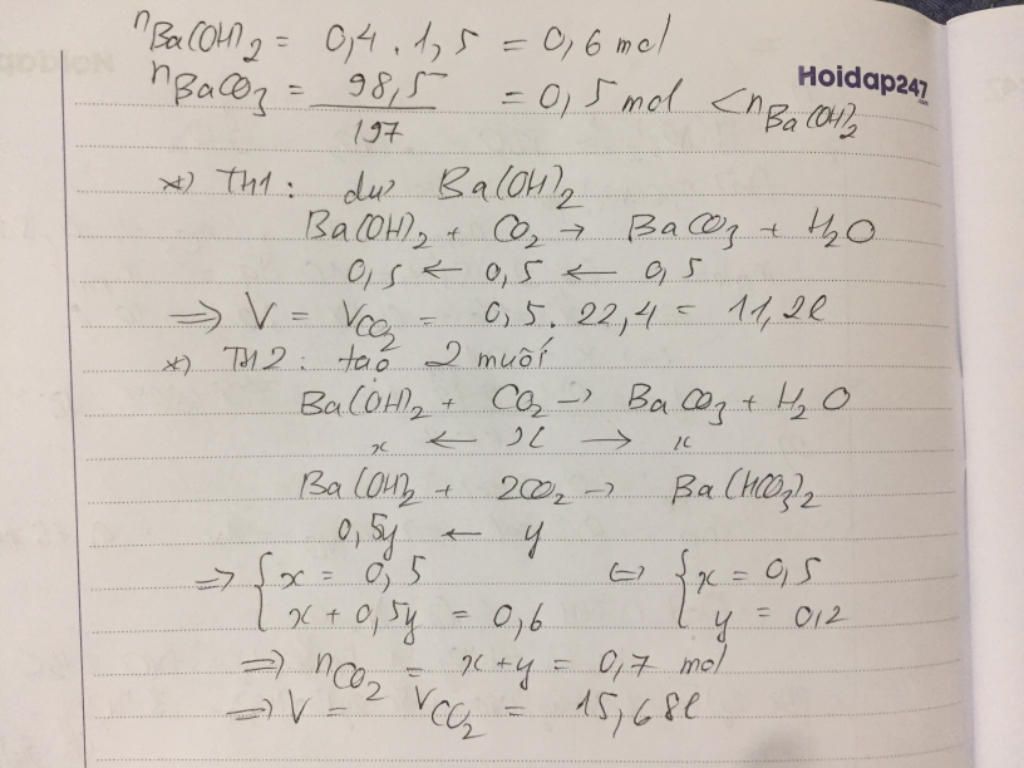 nBa(OH)2 = 0,4 . 1,5 = 0,6 mol
Hoidap247
.com
nBaCO3 = 98,5 / 197 = 0,5 mol < nBa(OH)2
*) TH1 : dư Ba(OH)2
Ba(OH)2 + CO2 → BaCO3 + H2O
0,5 ← 0,5 ← 0,5
=> V = VCO2 = 0,5 . 22,4 = 11,2l
*) TH2 : tạo 2 muối
Ba(OH)2 + CO2 → BaCO3 + H2O
x ← x → x
Ba(OH)2 + 2CO2 → Ba(HCO3)2
0,5y ← y
=> { x = 0,5 <=> { x = 0,5
x + 0,5y = 0,6 y = 0,2
=> nCO2 = x + y = 0,7 mol
=> V = VCO2 = 15,68l